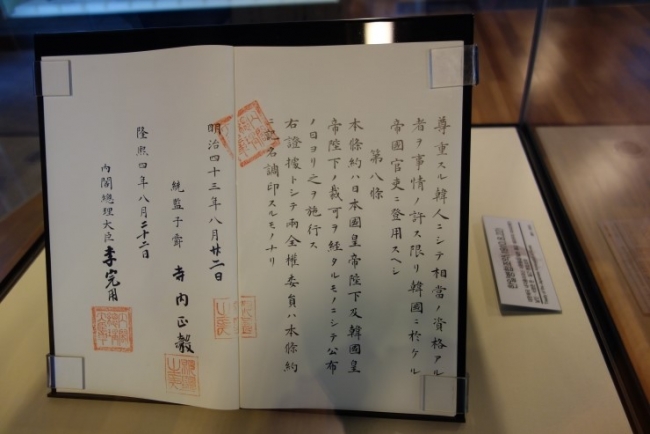 尊重スル韓人ニシテ相當ノ資格アル
者ヲ事情ノ許ス限リ韓國ニ於ケル
帝國官吏ニ登用スヘシ
第八條
本條約ハ日本國皇帝陛下及韓國皇
帝陛下ノ裁可ヲ経タルモノニシテ公布
ノ日ヨリ之ヲ施行ス
右證據トシテ兩全權委員ハ本條約
ニ記名調印スルモノナリ
明治四十三年八月廿二日
統監子爵 寺内正毅
隆熙四年八月二十二日
内閣總理大臣 李完用